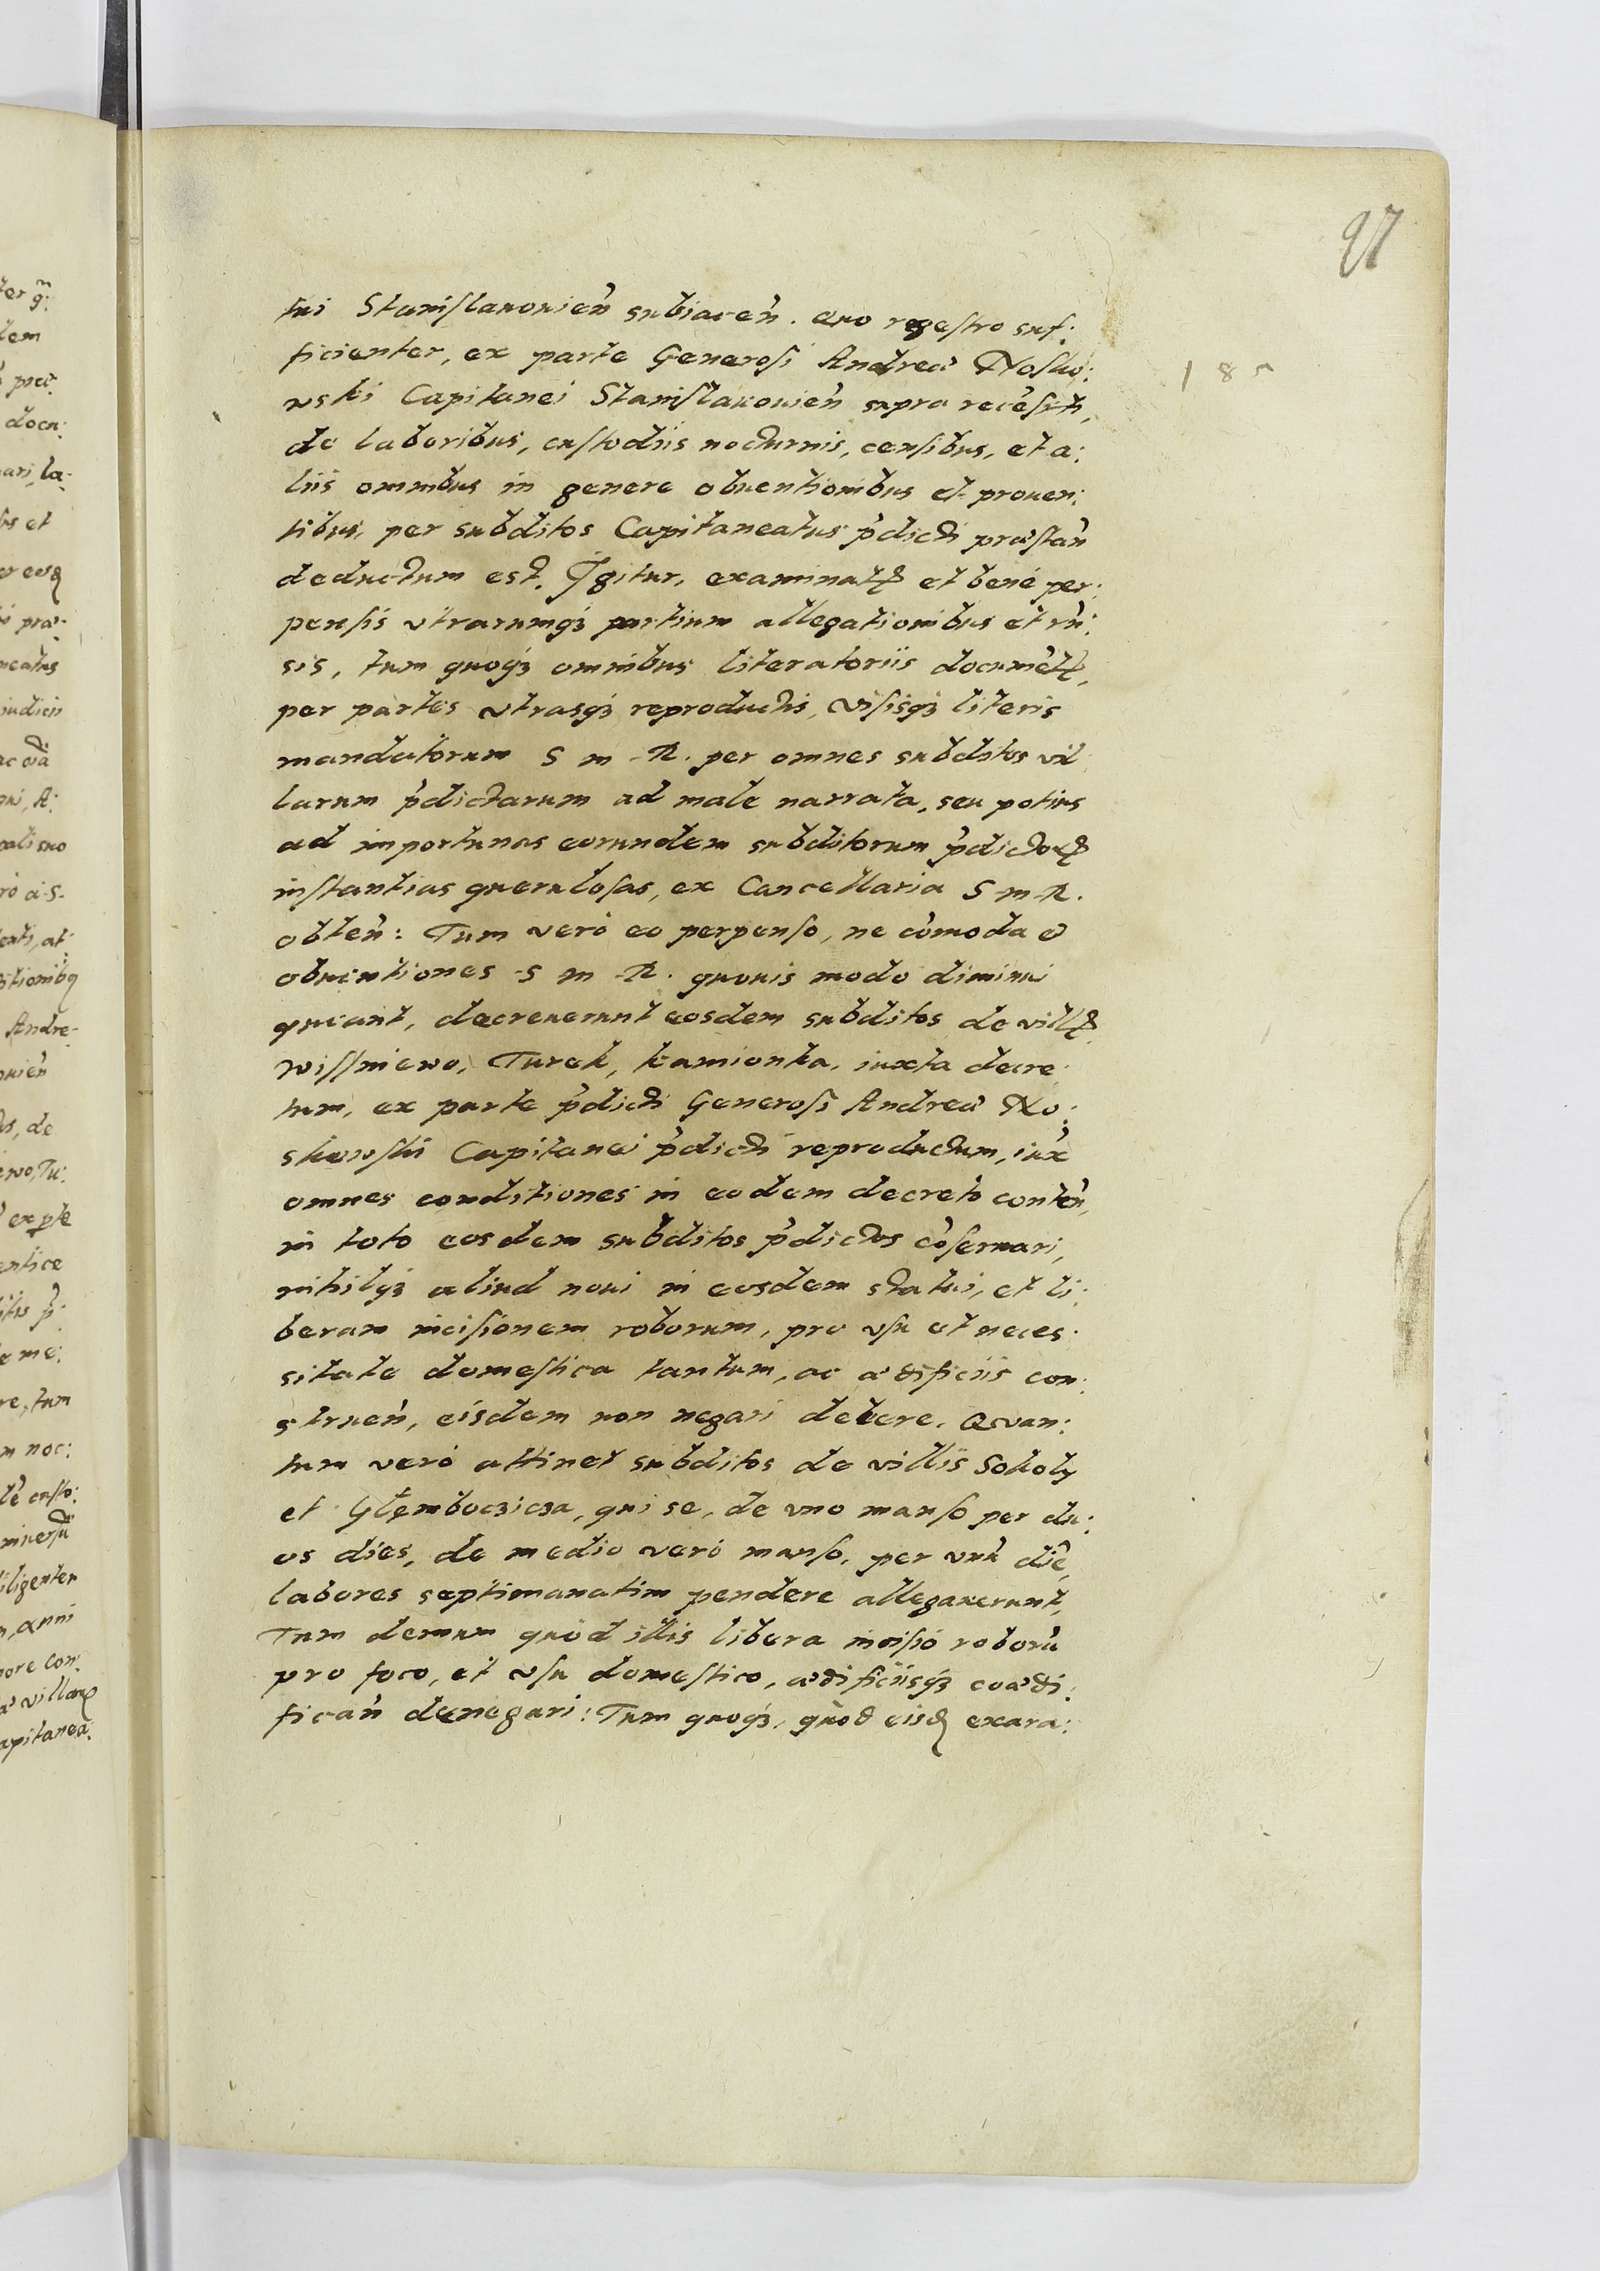 97
185
tui Staniſlauouień subiaceń. quo regestro suf:
ficienter, ex parte Generoſi Andreæ Noſko:
wski Capitanei Staniſlauouień supra recēsiti,
de laboribus, cuſtodiis nocturnis, cenſibus, et a:
liis omnibus in genere obuentionibus et prouen:
tibus, per subditos Capitaneatus p̃dicti præſtań
deductum est. Igitur, examinatꝭ et bené per:
penſis vtrarumqꝫ partium allegationibus et rń:
sis, tum quoqꝫ omnibus literatoriis documētꝭ,
per partes vtrasqꝫ reproductis, viſisqꝫ literis
mandatorum S m R. per omnes subditos vil
larum p̃dictarum ad male narrata, seu potius
ad importunas eorundem subditorum p̃dictoꝝ
inſtantias queruloſas, ex Cancellaria S m R.
obteń: Tum veró eo perpenſo, ne cōmoda et
obuentiones S m R. quouis modo diminui
queant, decreuerunt eosdem subditos de villꝭ
Wiſſniewo, Turek, Kamionka, iuxta decre
tum, ex parte p̃dicti Generoſi Andreæ No:
skowſki Capitanei p̃dicti reproductum, iux̃
omnes conditiones in eodem decreto conteń,
in toto eosdem subditos p̃dictos cōſeruari,
nihilqꝫ aliud noui in eosdem statui, et li:
beram inciſionem roborum, pro vſu et neces:
sitate domeſtica tantum, ac ædificiis con:
strueń, eisdem non negari debere. Quan:
tum veró attinet subditos de villis Sokoly
et Głęmboczicza, qui se, de vno manſo per du:
os dies, de medio veró manſo, per vnū diē,
labores septimanatim pendere allegauerunt,
Tum demum quód illis libera inciſio roborū
pro foco, et vſu domeſtico, ædificiisqꝫ coædi:
ficań denegari: Tum quoqꝫ, quód eisdꝫ exara: